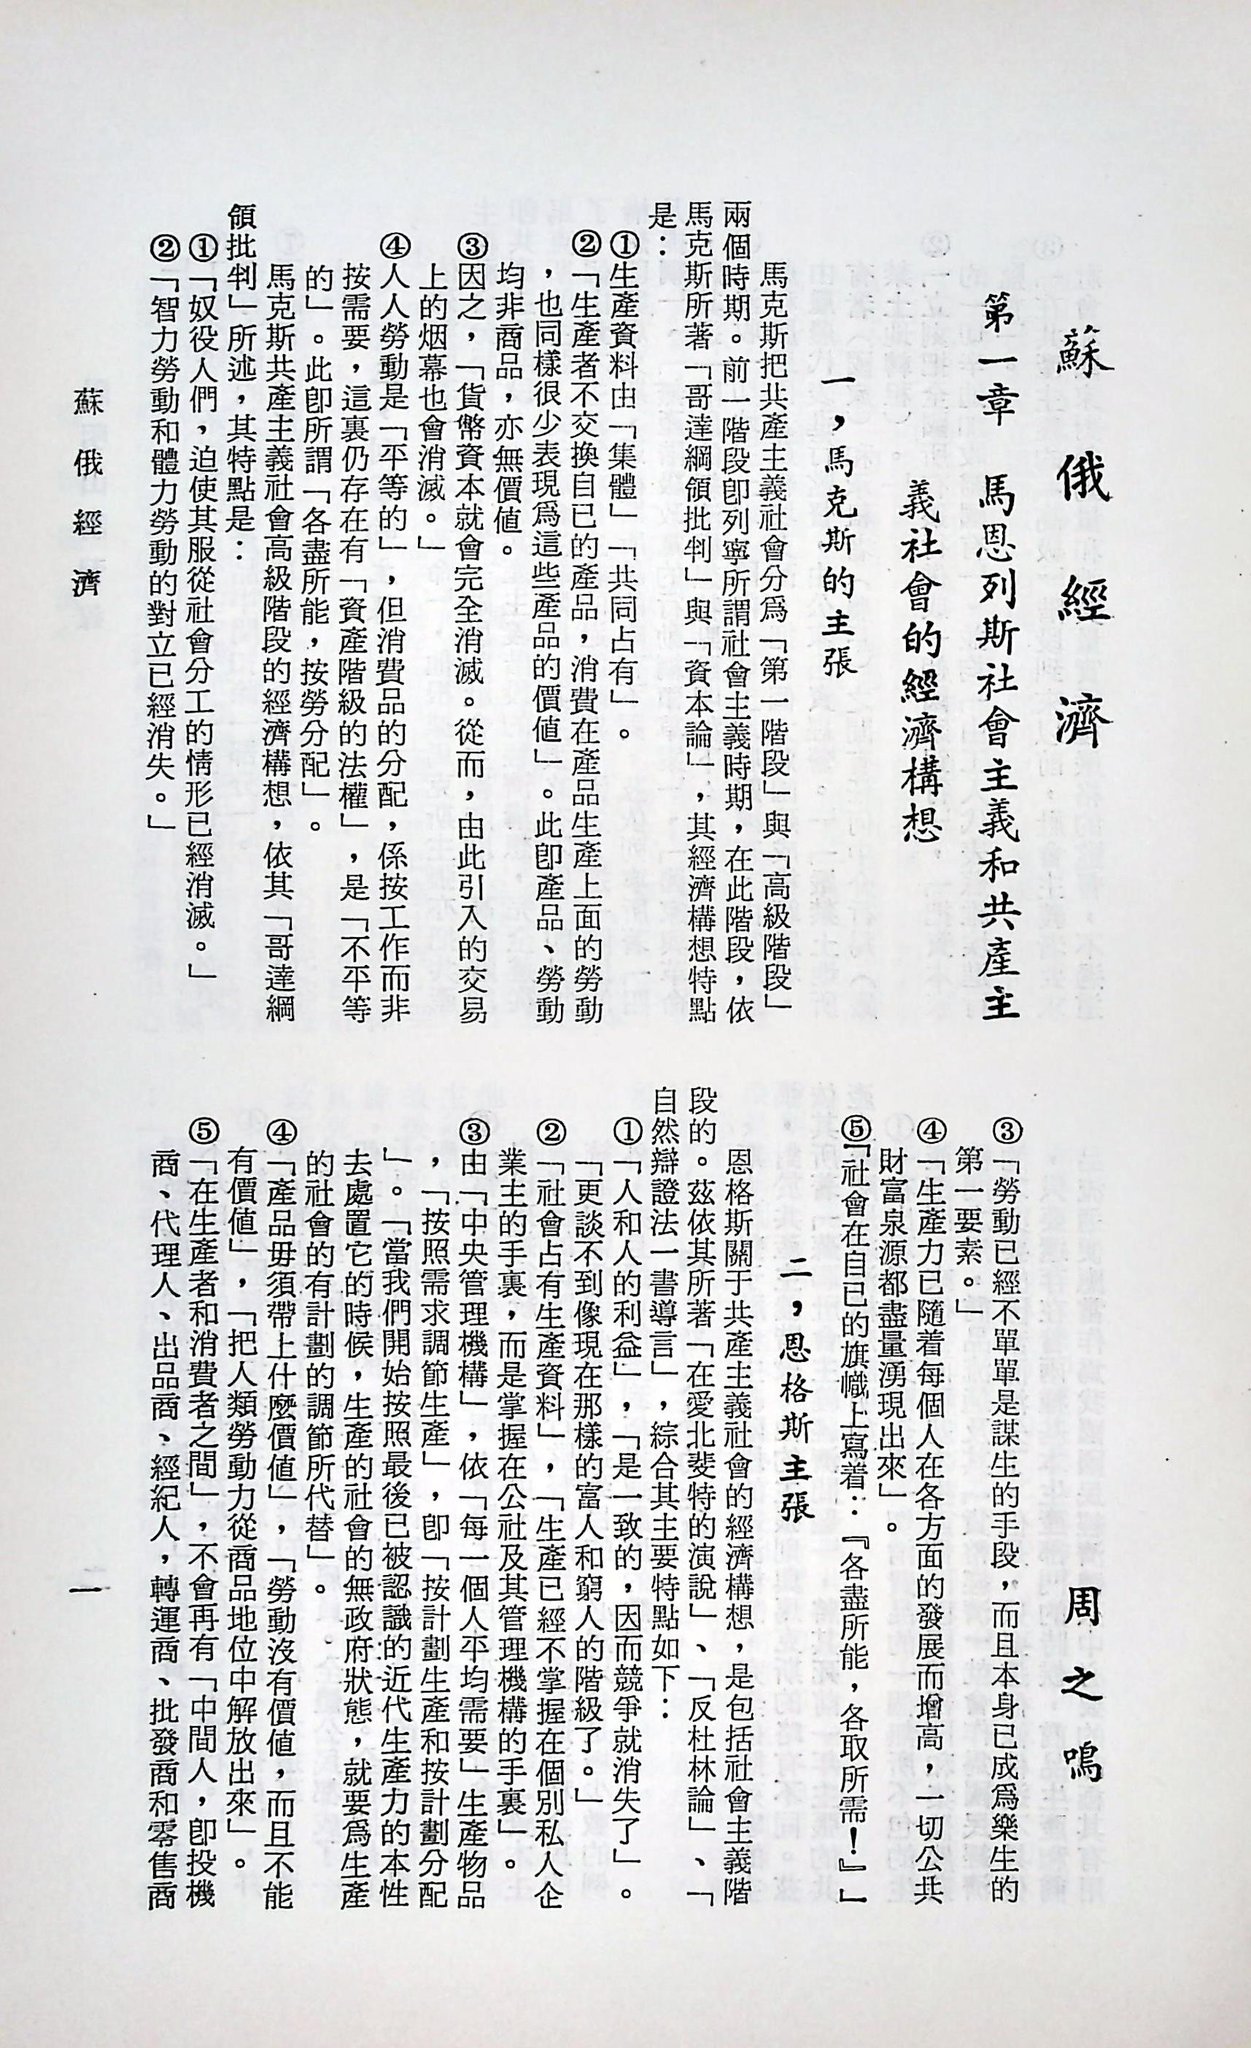 蘇俄經濟
周之鳴
第一章　馬恩列斯社會主義和共產主
義社會的經濟構想
一，馬克斯的主張
馬克斯把共產主義社會分爲「第一階段」與「高級階段」
兩個時期。前一階段卽列寧所謂社會主義時期，在此階段，依
馬克斯所著「哥達綱領批判」與「資本論」，其經濟構想特點
是：
①生產資料由「集體」「共同占有」。
②「生產者不交換自已的產品，消費在產品生產上面的勞動
，也同樣很少表現爲這些產品的價值」。此卽產品、勞動
均非商品，亦無價值。
③因之，「貨幣資本就會完全消滅。從而，由此引入的交易
上的烟幕也會消滅。」
④人人勞動是「平等的」，但消費品的分配，係按工作而非
按需要，這裏仍存在有「資產階級的法權」，是「不平等
的」。此卽所謂「各盡所能，按勞分配」。
馬克斯共產主義社會高級階段的經濟構想，依其「哥達綱
領批判」所述，其特點是：
①「奴役人們，迫使其服從社會分工的情形已經消滅。」
②「智力勞動和體力勞動的對立已經消失。」
③「勞動已經不單單是謀生的手段，而且本身已成爲樂生的
第一要素。」
④「生產力已隨着每個人在各方面的發展而增高，一切公共
財富泉源都盡量湧現出來」。
⑤「社會在自已的旗幟上寫着：『各盡所能，各取所需！』」
二，恩格斯主張
恩格斯關于共產主義社會的經濟構想，是包括社會主義階
段的。茲依其所著「在愛北斐特的演說」、「反杜林論」、「
自然辯證法一書導言」，綜合其主要特點如下：
①「人和人的利益」，「是一致的，因而競爭就消失了」。
「更談不到像現在那樣的富人和窮人的階級了。」
②「社會占有生產資料」，「生產已經不掌握在個別私人企
業主的手裏，而是掌握在公社及其管理機構的手裏」。
③由「中央管理機構」，依「每一個人平均需要」生產物品
，「按照需求調節生產」，卽「按計劃生產和按計劃分配
」。「當我們開始按照最後已被認識的近代生產力的本性
去處置它的時候，生產的社會的無政府狀態，就要爲生產
的社會的有計劃的調節所代替」。
④「產品毋須帶上什麼價值」，「勞動沒有價值，而且不能
有價值」，「把人類勞動力從商品地位中解放出來」。
⑤「在生產者和消費者之間」，不會再有「中間人，卽投機
商、代理人、出品商、經紀人，轉運商、批發商和零售商
蘇俄經濟
一